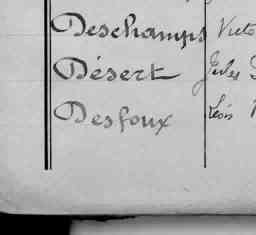 Deschamps Victo
Désert Jules
Desfoux Léon